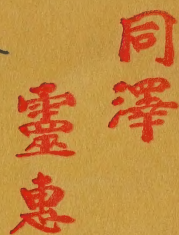 同澤
靈惠